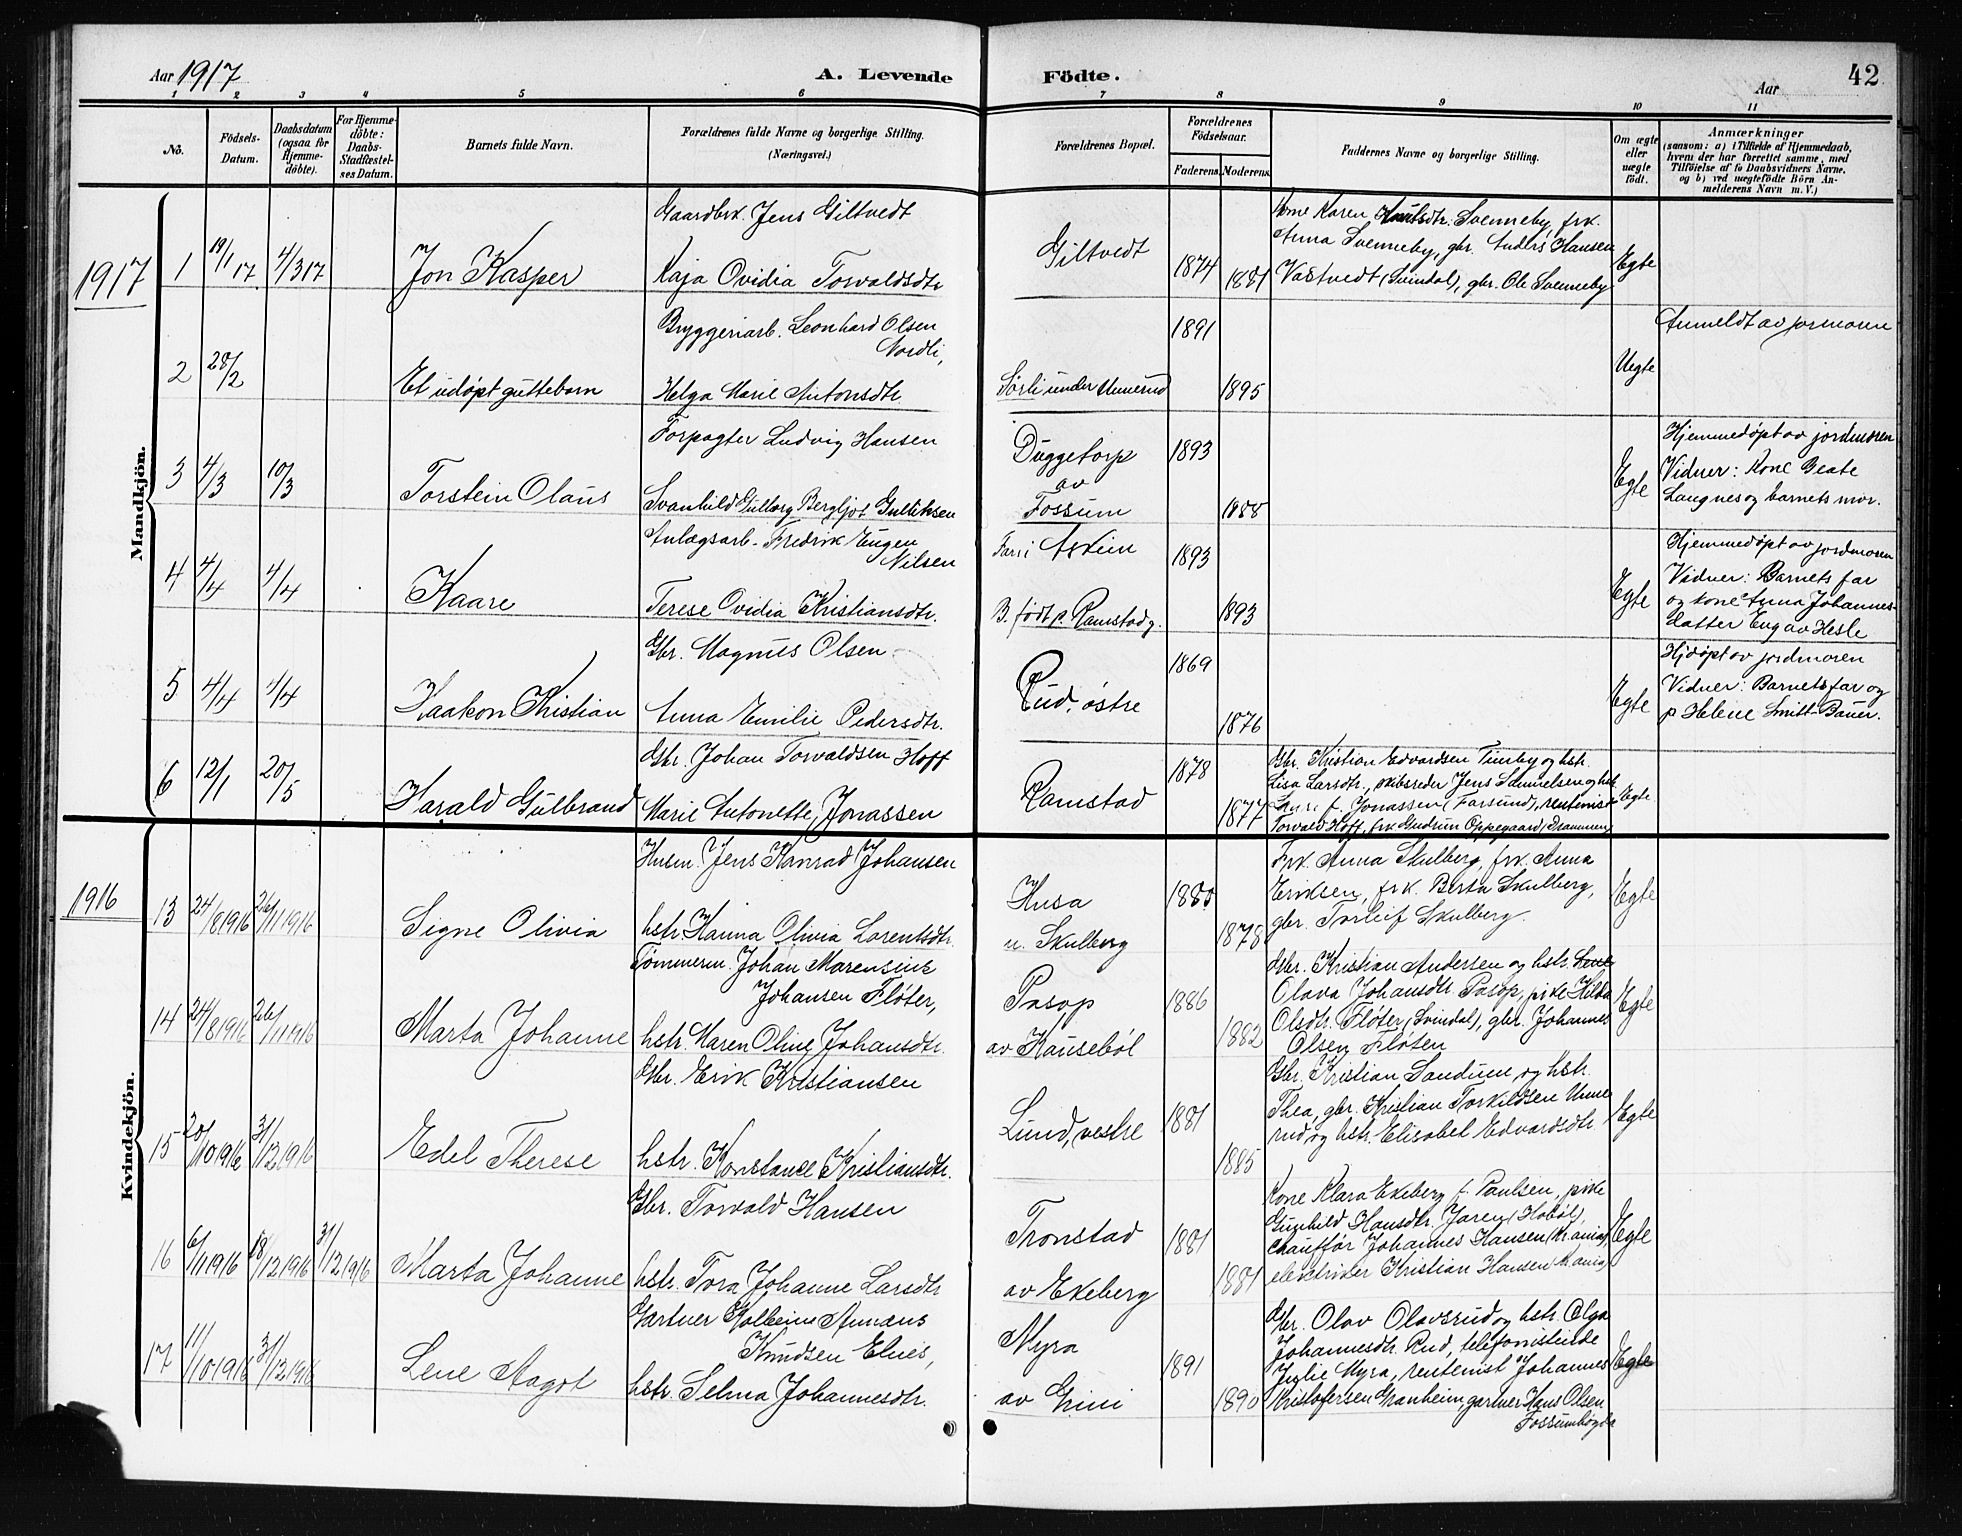 Aar 1917
A. Levende Födte.
Aar
42
1 2 3 4 5 6 7 8 9 10 11
No.
Födsels-Datum.
Daabsdatum (ogsaa for Hjemme-döbte).
For Hjemme-döbte: Daabs-Stadfæstel-ses Datum.
Barnets fulde Navn.
Forældrenes fulde Navne og borgerlige Stilling.
(Næringsvei.)
Forældrenes Bopæl.
Forældrenes Födselsaar.
Faderens. Moderens.
Faddernes Navne og borgerlige Stilling.
Om ægte eller uægte födt.
Anmærkninger
(saasom: a) i Tilfælde af Hjemmedaab,
hvem der har forrettet samme, med
Tilföielse af to Daabsvidners Navne,
og b) ved uægtefödte Börn An-
melderens Navn m. V.)
Mandkjön.
1917
1 19/1 17 4/3 17 Jon Kasper
Gaardbrk. Jens Giltvedt
Kaja Ovidia Torvaldsdtr
Giltvedt 1874 1881
Kone Karen Knutsdtr. Svenneby, frk.
Anna Svenneby, gbr. Anders Hansen
Vastvedt (Svindal), gbr. Ole Svenneby
Egte
2 28/2 Et udøpt guttebarn
Bryggeriarb. Leonhard Olsen
Nordli,
Helga Marie Antonsdtr.
Sørli under Unnerud 1891 1895
Uegte
Anmeldt av jormoren
3 4/3 10/3 Torstein Olaus
Forpagter Ludvig Hansen
Svanhild Gulborg Bergljot Gulliksen
Duggetorp
av
Fossum
1893 1888
Egte
Hjemmedøpt av jordmoren
Vidner: Kone Beate
Langnes og barnets mor.
4 4/4 4/4 Kaare
Anlægsarb. Fredrik Eugen
Nilsen
Terese Ovidia Kristiansdtr.
Far i Askim
B. født p. Ramstad g.
1893 1893
Egte
Hjemmedøpt av jordmoren
Vidner: Barnets far
og kone Anna Johannes-
datter Eng av Hesle
5 4/4 4/4 Haakon Kristian
Gbr. Magnus Olsen
Anna Emilie Pedersdtr.
Rud, østre
1869 1876
Egte
Hjdøpt av jordmoren
Vidner: Barnets far og
p Helene Smitt-Bauer.
6 12/1 20/5 Harald Gulbrand
Gbr. Johan Torvaldsen Hoff
Marie Antonette, Jonassen
Ramstad
1878 1877
Gbr. Kristian Edvardsen Timby og hstr.
Lisa Larsdtr., skibsreder Jens Samuelsen og hstr.
f. Jonassen (Farsund), rentenist
Torvald Hoff, frk Gudrun Oppegaard (Drammen)
Egte
Kvindekjön.
1916
13 24/8 1916 26/11 1916 Signe Olivia
Husm. Jens Konrad Johansen
hstr. Hanna Olivia Lorentsdtr.
Husa
u. Skulberg
1880 1878
Frk. Anna Skulberg, frk. Anna
Eriksen, frk. Berta Skulberg,
gbr. Torleif Skulberg.
Egte
14 24/8 1916 26/11 1916 Marta Johanne
Tømmerm. Johan Marensius
Johansen Fløter,
hstr. Maren Oline Johansdtr.
Pasop
av Kausebøl
1886 1882
Gbr. Kristian Andersen og hstr. Lene
Olava Johansdtr. Pasop, pike Hilda
Olsdtr. Fløter (Svindal), gbr. Johannes
Olsen Fløten
Egte
15 20/10 1916 31/12 1916 Edel Therese
Gbr. Erik Kristiansen
hstr. Konstance Kristiansdtr.
Lund, vestre
1881 1885
Gbr. Kristian Sandum og hstr.
Thea, gbr. Kristian Torkildsen Unne-
rud og hstr. Elisabel Edvardsdtr.
Egte
16 6/11 1916 18/12 1916 31/12 1916 Marta Johanne
Gbr. Torvald Hansen
hstr. Tora Johanne Larsdtr
Tronstad
av Ekeberg
1881 1881
Kone Klara Ekeberg f. Paulsen, pike
Gunhild Hansdtr. Jaren (Hobøl),
chauffør Johannes Hansen (Kr.ania),
elektriker Kristian Hansen (Kr.ania)
Egte
17 11/10 1916 31/12 1916 Lene Aagot
Gartner Halbein Amans
Knudsen Elnes,
hstr. Selma Johannesdtr.
Myra
av Grini
1891 1890
Gbr. Olav Olavsrud og hstr. Olga
Johannesdtr. Rud, telefonistinde
Julie Myra, rentenist Johannes
Kristofersen Granheim, gartner Hans Olsen
Fossumbøgda
Egte